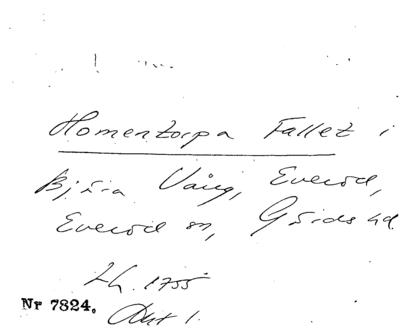 Homentorpa Fallet i
Bjära Vång, Everöd,
Everöd sn, Gärds hd.
Lh. 1755
Nr 7824.
Akt 1.